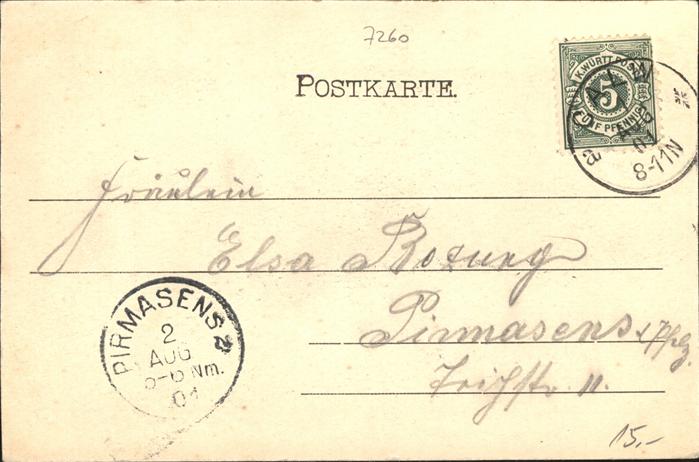 7260
POSTKARTE.
K. WÜRTT. POST
5
FÜNF PFENNIG
CALW
AUG
01
8-11N
Fräulein
Elsa
Pirmasens
PIRMASENS 2
2
AUG
5-6 Nm.
01
11.
15,-